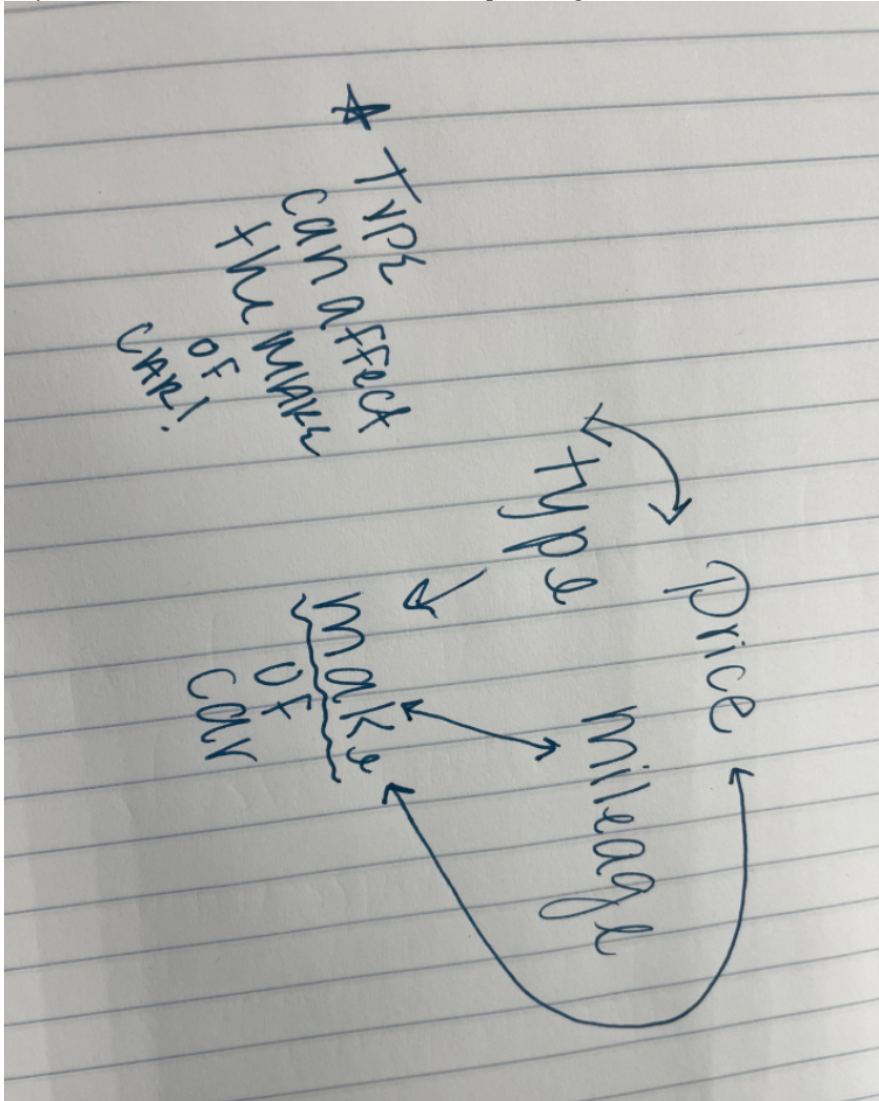 Price
type
mileage
make
of
car
★ Type
can affect
the MAKE
OF
CAR!